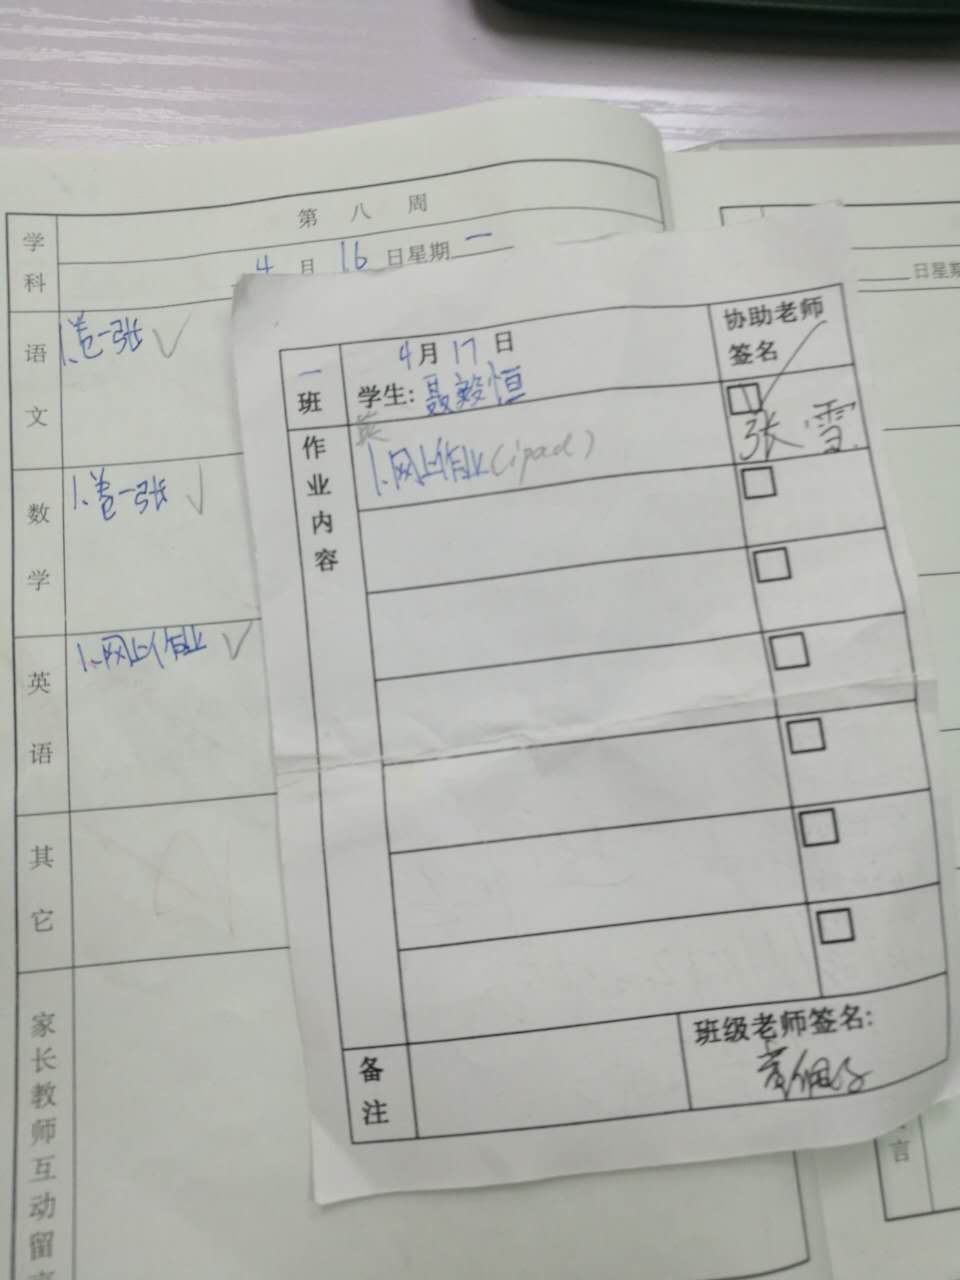 第 八 周
学科
4 月 16 日星期 一
语文
1.卷一张 ✓
数学
1.卷一张 ✓
英语
1.网上作业 ✓
其它
家长教师互动留
一班
4月17日
学生: 聂毅恒
协助老师
签名
作业内容
英
1.网上作业(ipad)
张雪
备注
班级老师签名:
日星期
言